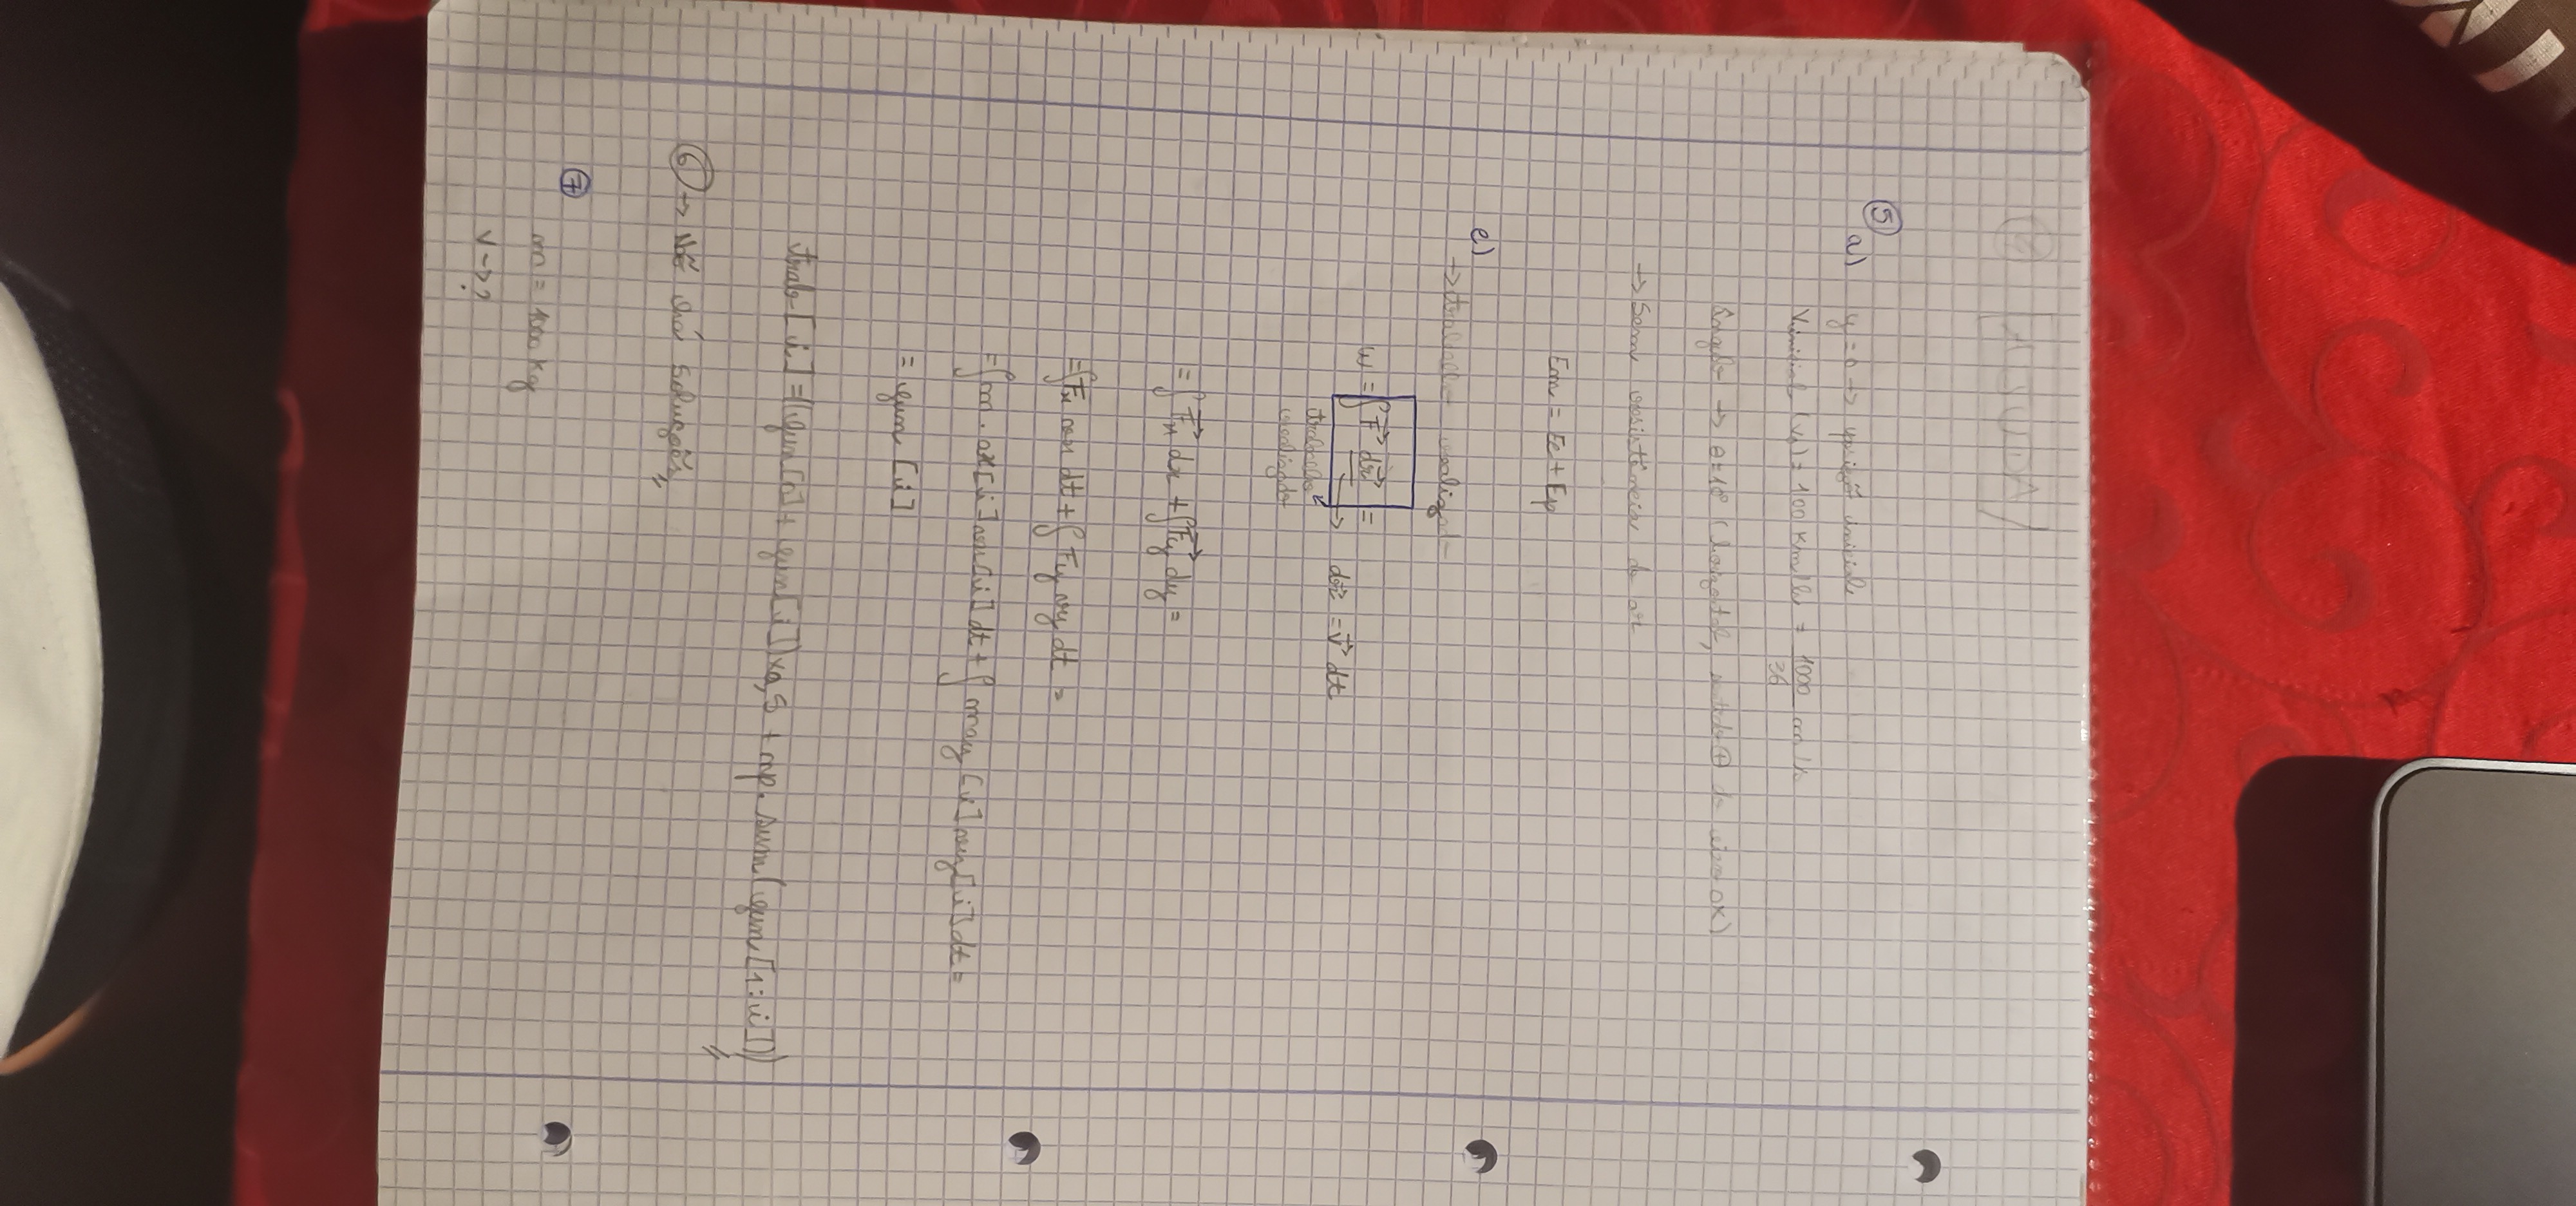 AJUDA
⑤
a) y = 0 → posição inicial
Vinicial (v0) = 100 km/h = 1000/36 m/s
Ângulo → θ = 10° (horizontal, sentido ⊕ do eixo OX)
→ Sem resistência do ar
Em = Ec + Ep
e)
→ trabalho realizado
W = ∫F⃗ dr⃗ =
→ dr⃗ = v⃗ dt
trabalho realizado
= ∫F⃗x dx + ∫F⃗y dy =
= ∫Fx vx dt + ∫Fy vy dt =
= ∫m.ax[i] vx[i] dt + ∫m ay[i] vy[i] dt =
= fun[i]
trab[i] = ((fun[0] + fun[i]) x0,5 + np.sum(fun[1:i]))
⑥ → Nõ há soluções
⑦
m = 1000 kg
v → ?